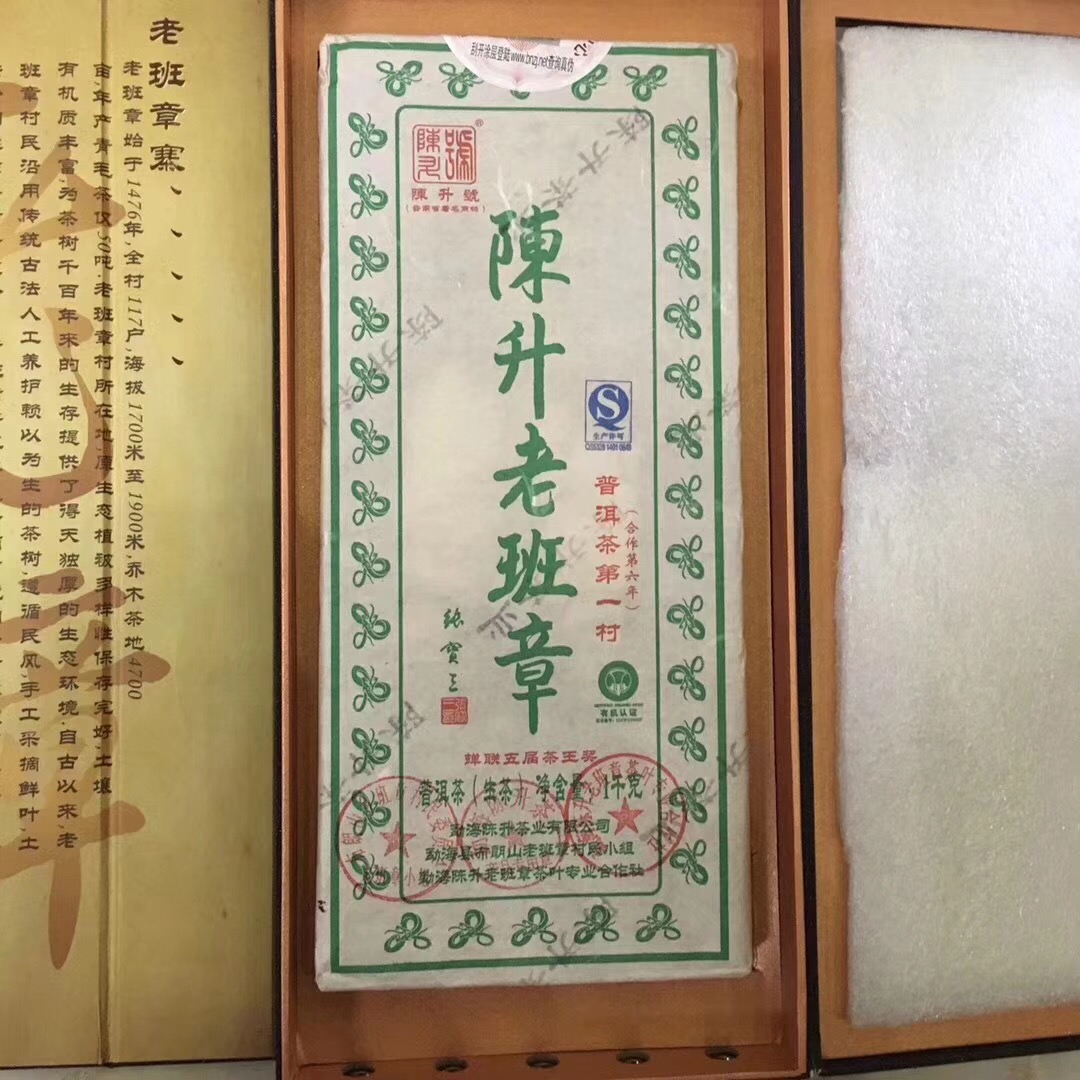 老班章寨
老班章始于1476年,全村117户,海拔1700米至1900米,乔木茶地4700
亩,年产青毛茶仅50吨.老班章村所在地,原生态植被多样性保存完好,土壤
有机质丰富,为茶树千百年来的生存提供了得天独厚的生态环境,自古以来,老
班章村民沿用传统古法人工养护赖以为生的茶树,遵循民风,手工采摘鲜叶,土
刮开涂层登陆www.bnzj.net查询真伪
陳升號
®
陳升號
(云南省著名商标)
陳升老班章
生产许可
普洱茶第一村
(合作第六年)
张宝三
有机认证
蝉联五届茶王奖
普洱茶(生茶) 净含量:1千克
勐海陈升茶业有限公司
勐海县布朗山老班章村民小组
勐海陈升老班章茶叶专业合作社
陈升茶业